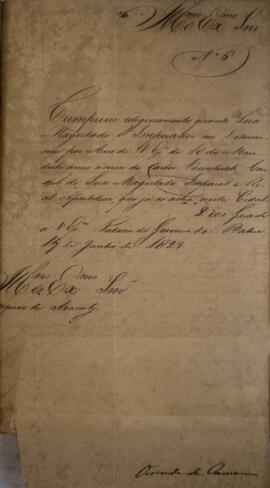 Illmo. e Exmo. Snr.
No. 6
Cumprirei religiosamente quanto Sua
Magestade o Imperador me determi
por Aviso de V. Exa. de 16 de Mar
deste anno acerca de Carlos Con
sul de Sua Magestade Imperial e Re
al Apostolica, que já se acha nesta Cidade
Deos Guarde
a V. Exa. Palacio do Governo da Bahia
17 de Junho de 1829
Illmo. e Exmo. Snr.
Marquez de Aracaty
Visconde de Camamú